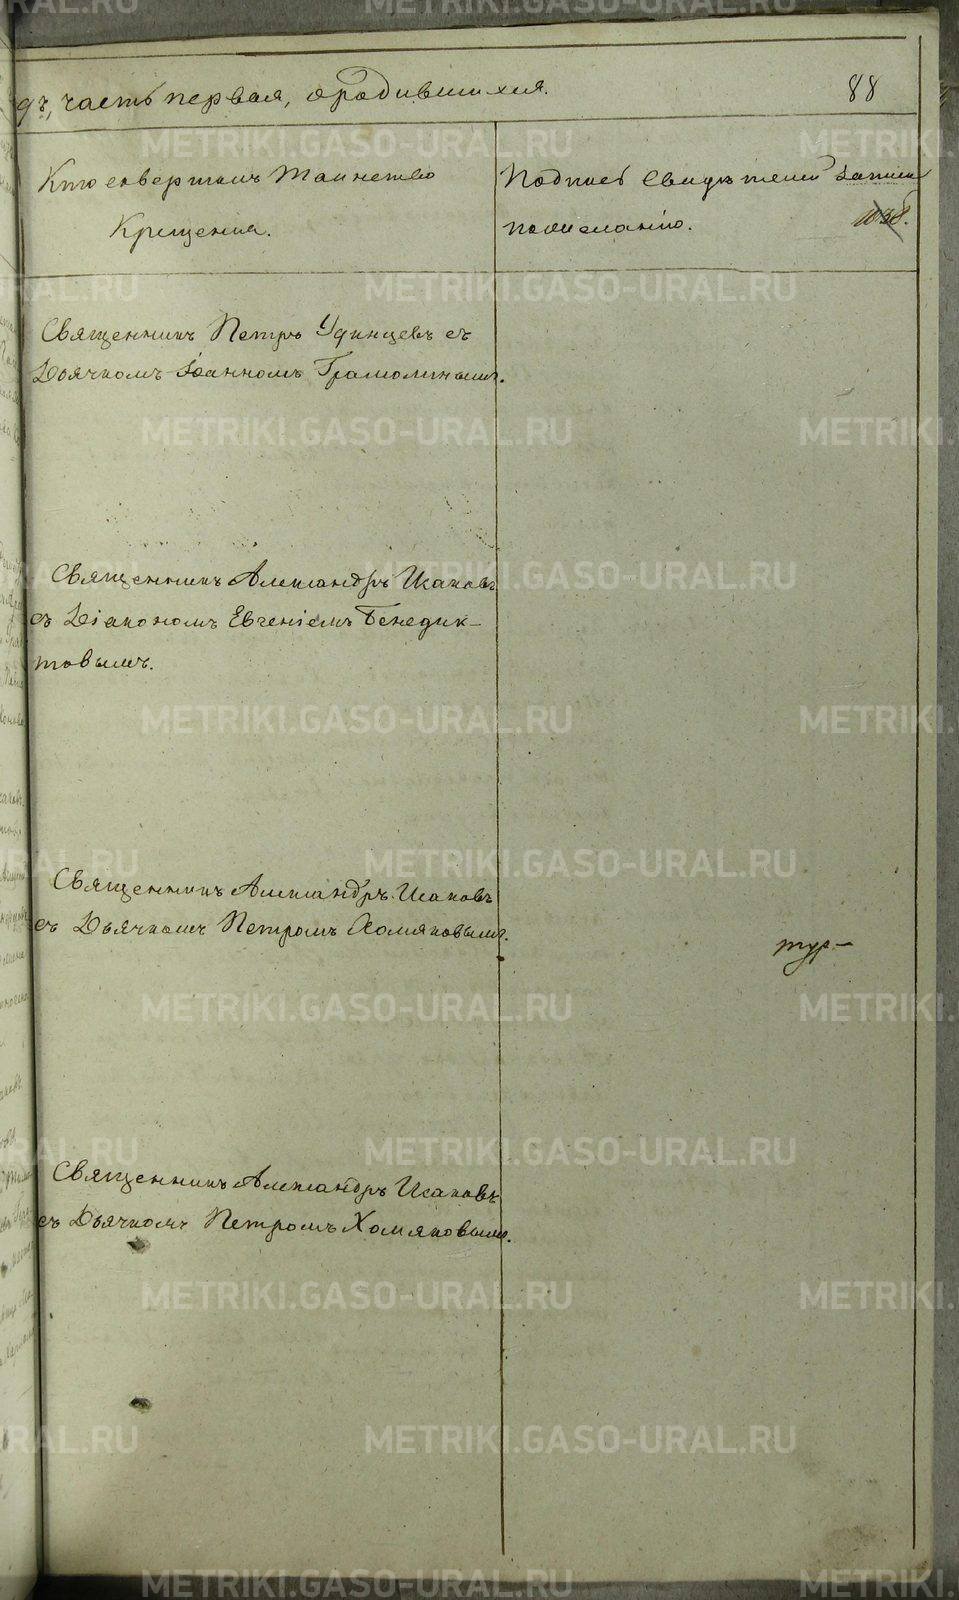 дъ, часть первая, о родившихся. 88
Кто совершалъ Таинство
Крещения.
Подпись свидѣтелей записи
по желанію. 1038.
Священникъ Петръ Удинцевъ съ
Дьячкомъ Іоанномъ Грамолинымъ.
Священникъ Александръ Исаковъ
съ Діакономъ Евгеніемъ Бенедик-
товымъ.
Священникъ Александръ Исаковъ
съ Дьячкомъ Петромъ Хомяковымъ.
тур-
Священникъ Александръ Исаковъ
съ Дьячкомъ Петромъ Хомяковымъ.
METRIKI.GASO-URAL.RU